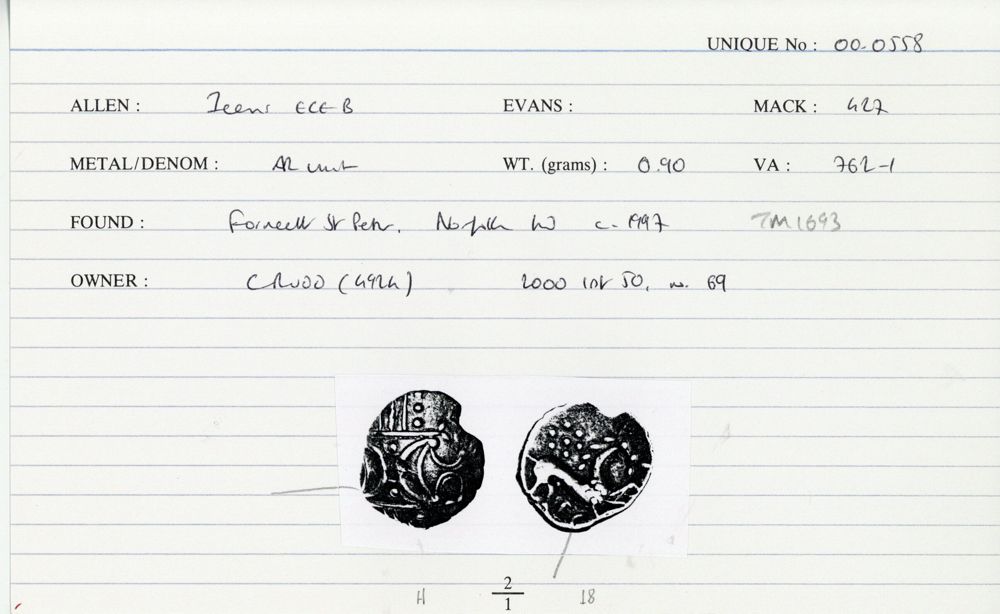 UNIQUE No : 00-0558
ALLEN : Iceni ECE B EVANS : MACK : 427
METAL/DENOM : AR unit WT. (grams) : 0.90 VA : 762-1
FOUND : Forncett St Peter, Norfolk c. 1997 TM1693
OWNER : C RUDD 2000 list 50, no. 69
H 2/1 18